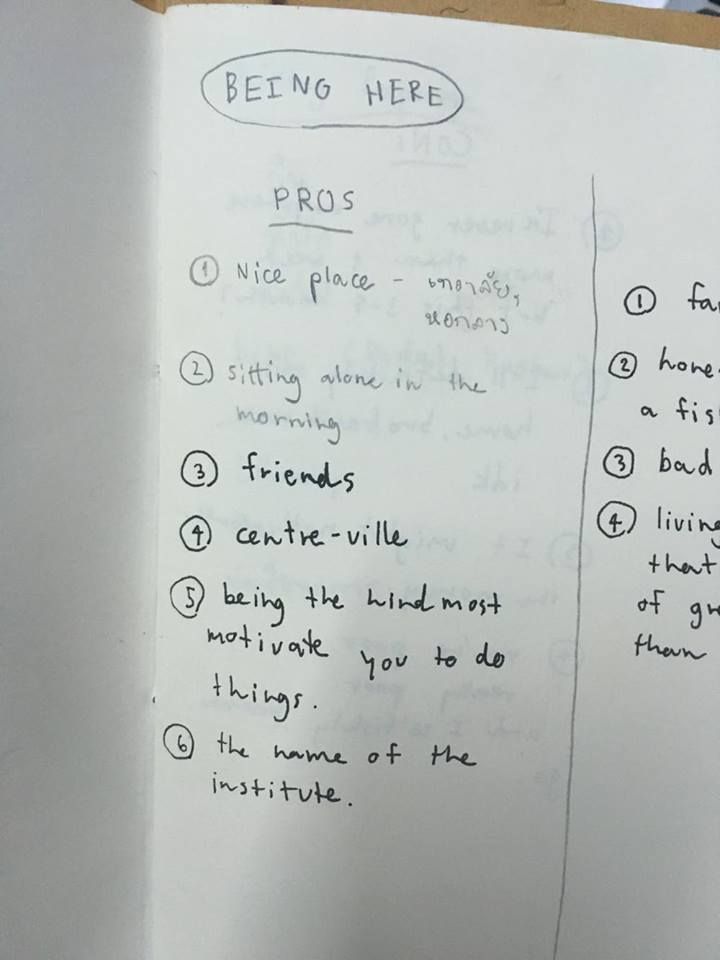 BEING HERE
PROS
① Nice place - เทวาลัย,
หอกลาง
② sitting alone in the
morning
③ friends
④ centre-ville
⑤ being the hindmost
motivate you to do
things.
⑥ the name of the
institute.
①
②
a
③ bad
④ living
that
of
than